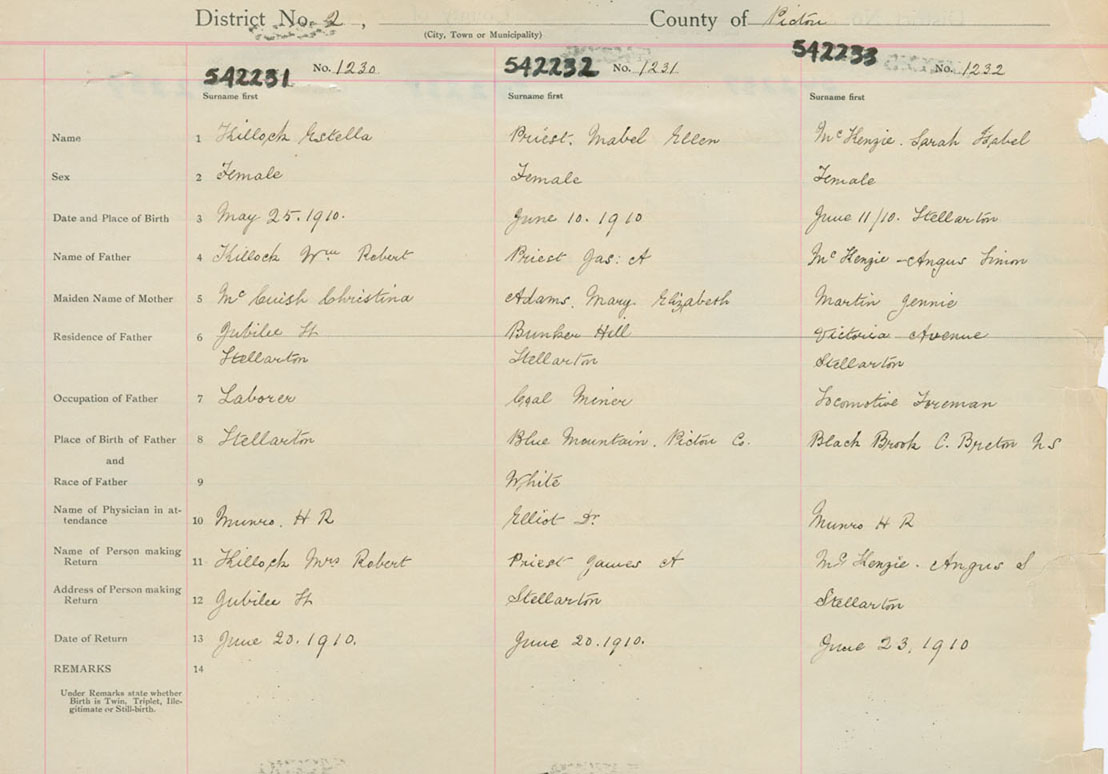 District No. 2, County of Pictou
(City, Town or Municipality)
542231 No. 1230 542232 No. 1231 542233 No. 1232
Surname first Surname first Surname first
Name 1 Killock Estella Priest. Mabel Ellen McKenzie. Sarah Isabel
Sex 2 Female Female Female
Date and Place of Birth 3 May 25. 1910. June 10. 1910 June 11/10. Stellarton
Name of Father 4 Killock Wm Robert Priest Jas: A McKenzie - Angus Simon
Maiden Name of Mother 5 McCuish Christina Adams. Mary. Elizabeth Martin Jennie
Residence of Father 6 Jubilee St Bunker Hill Victoria Avenue
Stellarton Stellarton Stellarton
Occupation of Father 7 Laborer Coal Miner Locomotive Foreman
Place of Birth of Father 8 Stellarton Blue Mountain. Pictou Co. Black Brook C. Breton NS
and
Race of Father 9 White
Name of Physician in at-
tendance 10 Munro. H R Elliot Dr Munro H R
Name of Person making
Return 11 Killock Mrs Robert Priest James A McKenzie. Angus S
Address of Person making
Return 12 Jubilee St Stellarton Stellarton
Date of Return 13 June 20. 1910. June 20. 1910. June 23, 1910
REMARKS 14
Under Remarks state whether
Birth is Twin, Triplet, Ille-
gitimate or Still-birth.